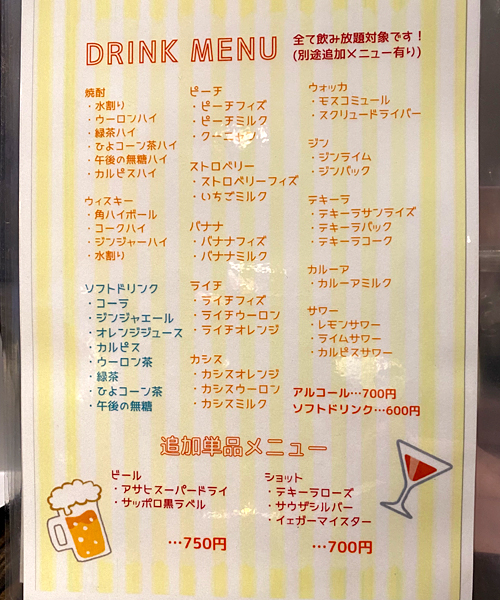 DRINK MENU
全て飲み放題対象です！
(別途追加メニュー有り)
焼酎
・水割り
・ウーロンハイ
・緑茶ハイ
・ひよコーン茶ハイ
・午後の無糖ハイ
・カルピスハイ
ウィスキー
・角ハイボール
・コークハイ
・ジンジャーハイ
・水割り
ソフトドリンク
・コーラ
・ジンジャエール
・オレンジジュース
・カルピス
・ウーロン茶
・緑茶
・ひよコーン茶
・午後の無糖
ピーチ
・ピーチフィズ
・ピーチミルク
ストロベリー
・ストロベリーフィズ
・いちごミルク
バナナ
・バナナフィズ
・バナナミルク
ライチ
・ライチフィズ
・ライチウーロン
・ライチオレンジ
カシス
・カシスオレンジ
・カシスウーロン
・カシスミルク
ウォッカ
・モスコミュール
・スクリュードライバー
ジン
・ジンライム
・ジンバック
テキーラ
・テキーラサンライズ
・テキーラバック
・テキーラコーク
カルーア
・カルーアミルク
サワー
・レモンサワー
・ライムサワー
・カルピスサワー
アルコール…700円
ソフトドリンク…600円
追加単品メニュー
ビール
・アサヒスーパードライ
・サッポロ黒ラベル
…750円
ショット
・テキーラローズ
・サウザシルバー
・イェガーマイスター
…700円